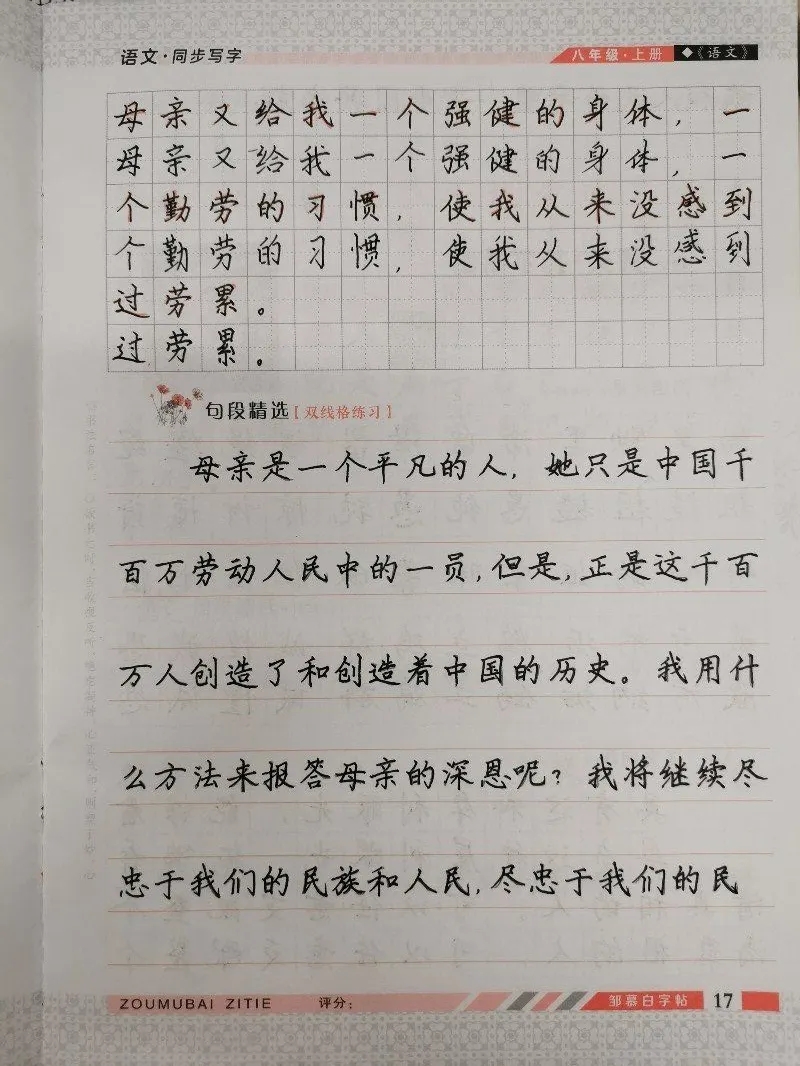 语文·同步写字
八年级·上册 ◆《语文》
母亲又给我一个强健的身体，一
母亲又给我一个强健的身体，一
个勤劳的习惯，使我从来没感到
个勤劳的习惯，使我从来没感到
过劳累。
过劳累。
句段精选[双线格练习]
母亲是一个平凡的人，她只是中国千
百万劳动人民中的一员，但是，正是这千百
万人创造了和创造着中国的历史。我用什
么方法来报答母亲的深恩呢？我将继续尽
忠于我们的民族和人民，尽忠于我们的民
ZOUMUBAI ZITIE 评分： 邹慕白字帖 17